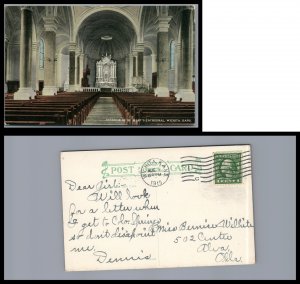 INTERIOR OF ST. MARY'S CATHEDRAL, WICHITA, KANS.
POST CARD
WICHITA, KANS.
1915
Dear Girl:-
Will look
for a letter when
I get to Colo. Springs
so don't disappoint
me.
Dennis.
Miss Bernice Wilhite
502 Center
Alva
Okla.